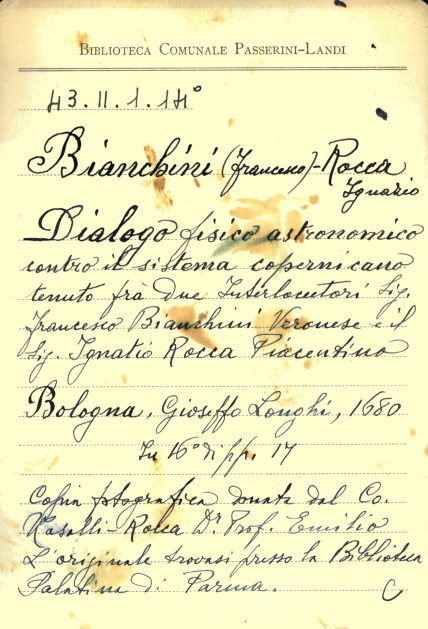 BIBLIOTECA COMUNALE PASSERINI-LANDI
43.II.1.14°
Bianchini (Francesco) - Rocca
Ignazio
Dialogo fisico astronomico
contro il sistema copernicano
tenuto frà due Interlocutori Sig.
Francesco Bianchini Veronese e il
Sig. Ignatio Rocca Piacentino
Bologna, Gioseffo Longhi, 1680
In 16° di pp. 17
Copia fotografica donata dal Co.
Nasalli-Rocca Dr. Prof. Emilio
L'originale trovasi presso la Biblioteca
Palatina di Parma.